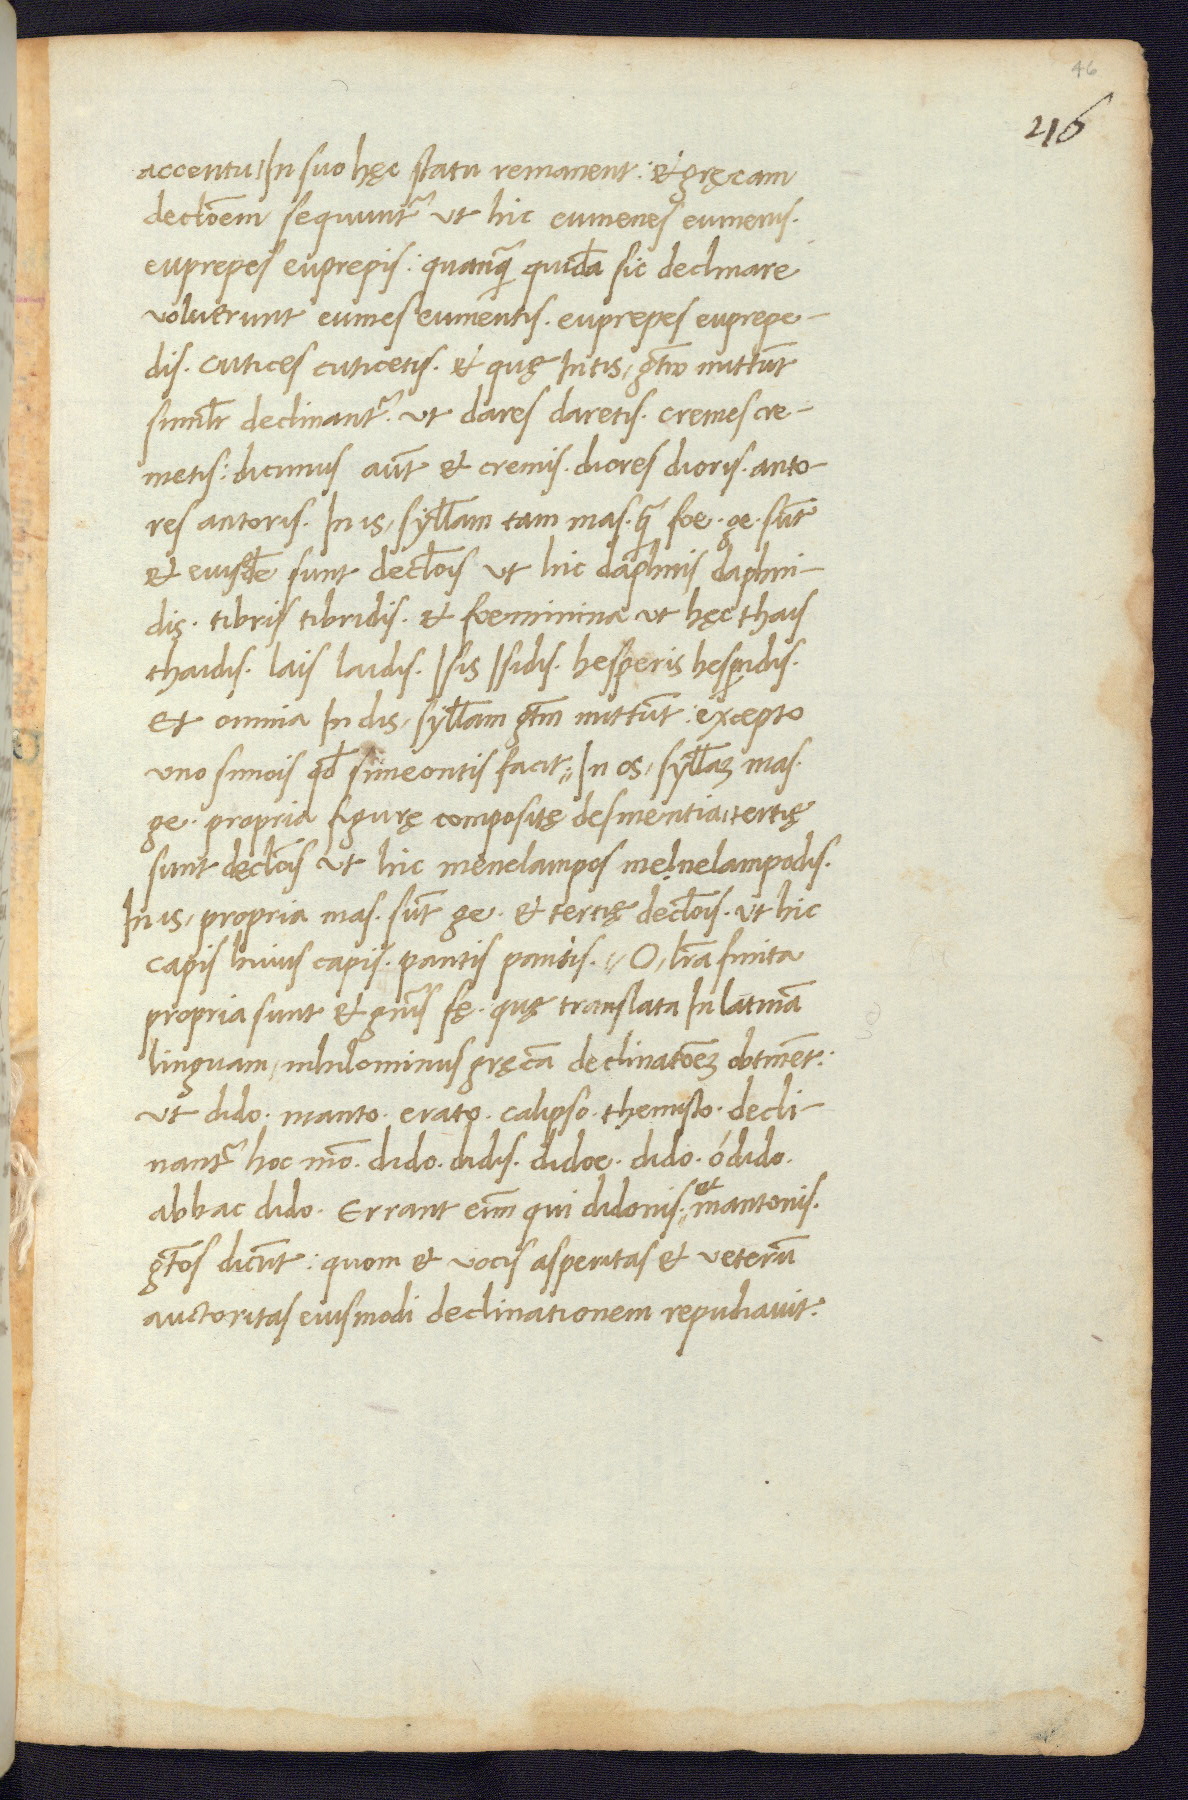 46
216
accentu, In suo hęc statu remanent: et gręcam
declo͞em sequunt᷑ ut hic eumenes eumenis.
euprepes euprepis: quanq̃ quidā sic declinare
voluerunt eumes eumentis. euprepes euprepe-
dis. cutices cuticetis. et quę In tis, gt͞io mittu͞t
simil͞r declinant᷑. ut dares daretis. cremes cre-
metis: dicimus au͞t et cremis. diores dioris. anto-
res antoris. In is, syll͞am tam mas. q̃ foe. ge. su͞t
et eiusdē sunt declo͞is ut hic daphnis daphni-
dis. tibris tibridis. et foeminina ut hęc thais
thaidis. lais laidis. Isis Isidis. hesperis hesꝑidis.
Et omnia In dis, syll͞am gt͞m mittu͞t: excepto
uno simois qđ simeontis facit., In os, syll͞aꝫ mas.
ge. propria figurę compositę desinentia, tertię
sunt declo͞is ut hic menelampos menelampodis.
In is, propria mas. su͞t ge. et tertię declo͞is. ut hic
capis huius capis. pantis pantis., O, lr͞a finita
propria sunt et gn͞is fę. quę translata In latinā
linguam, nihilominus gręcā declinatio͞eꝫ obtine͞t:
ut dido. manto. erato. calipso. themisto. decli-
nant᷑ hoc mō. dido. didis. didoe. dido. ó dido.
ab hac dido. Errant eni͞m qui didonis., et mantonis.
gt͞os dicu͞t: quom et vocis asperitas et veterū
auctoritas eiusmodi declinationem repudiavit.